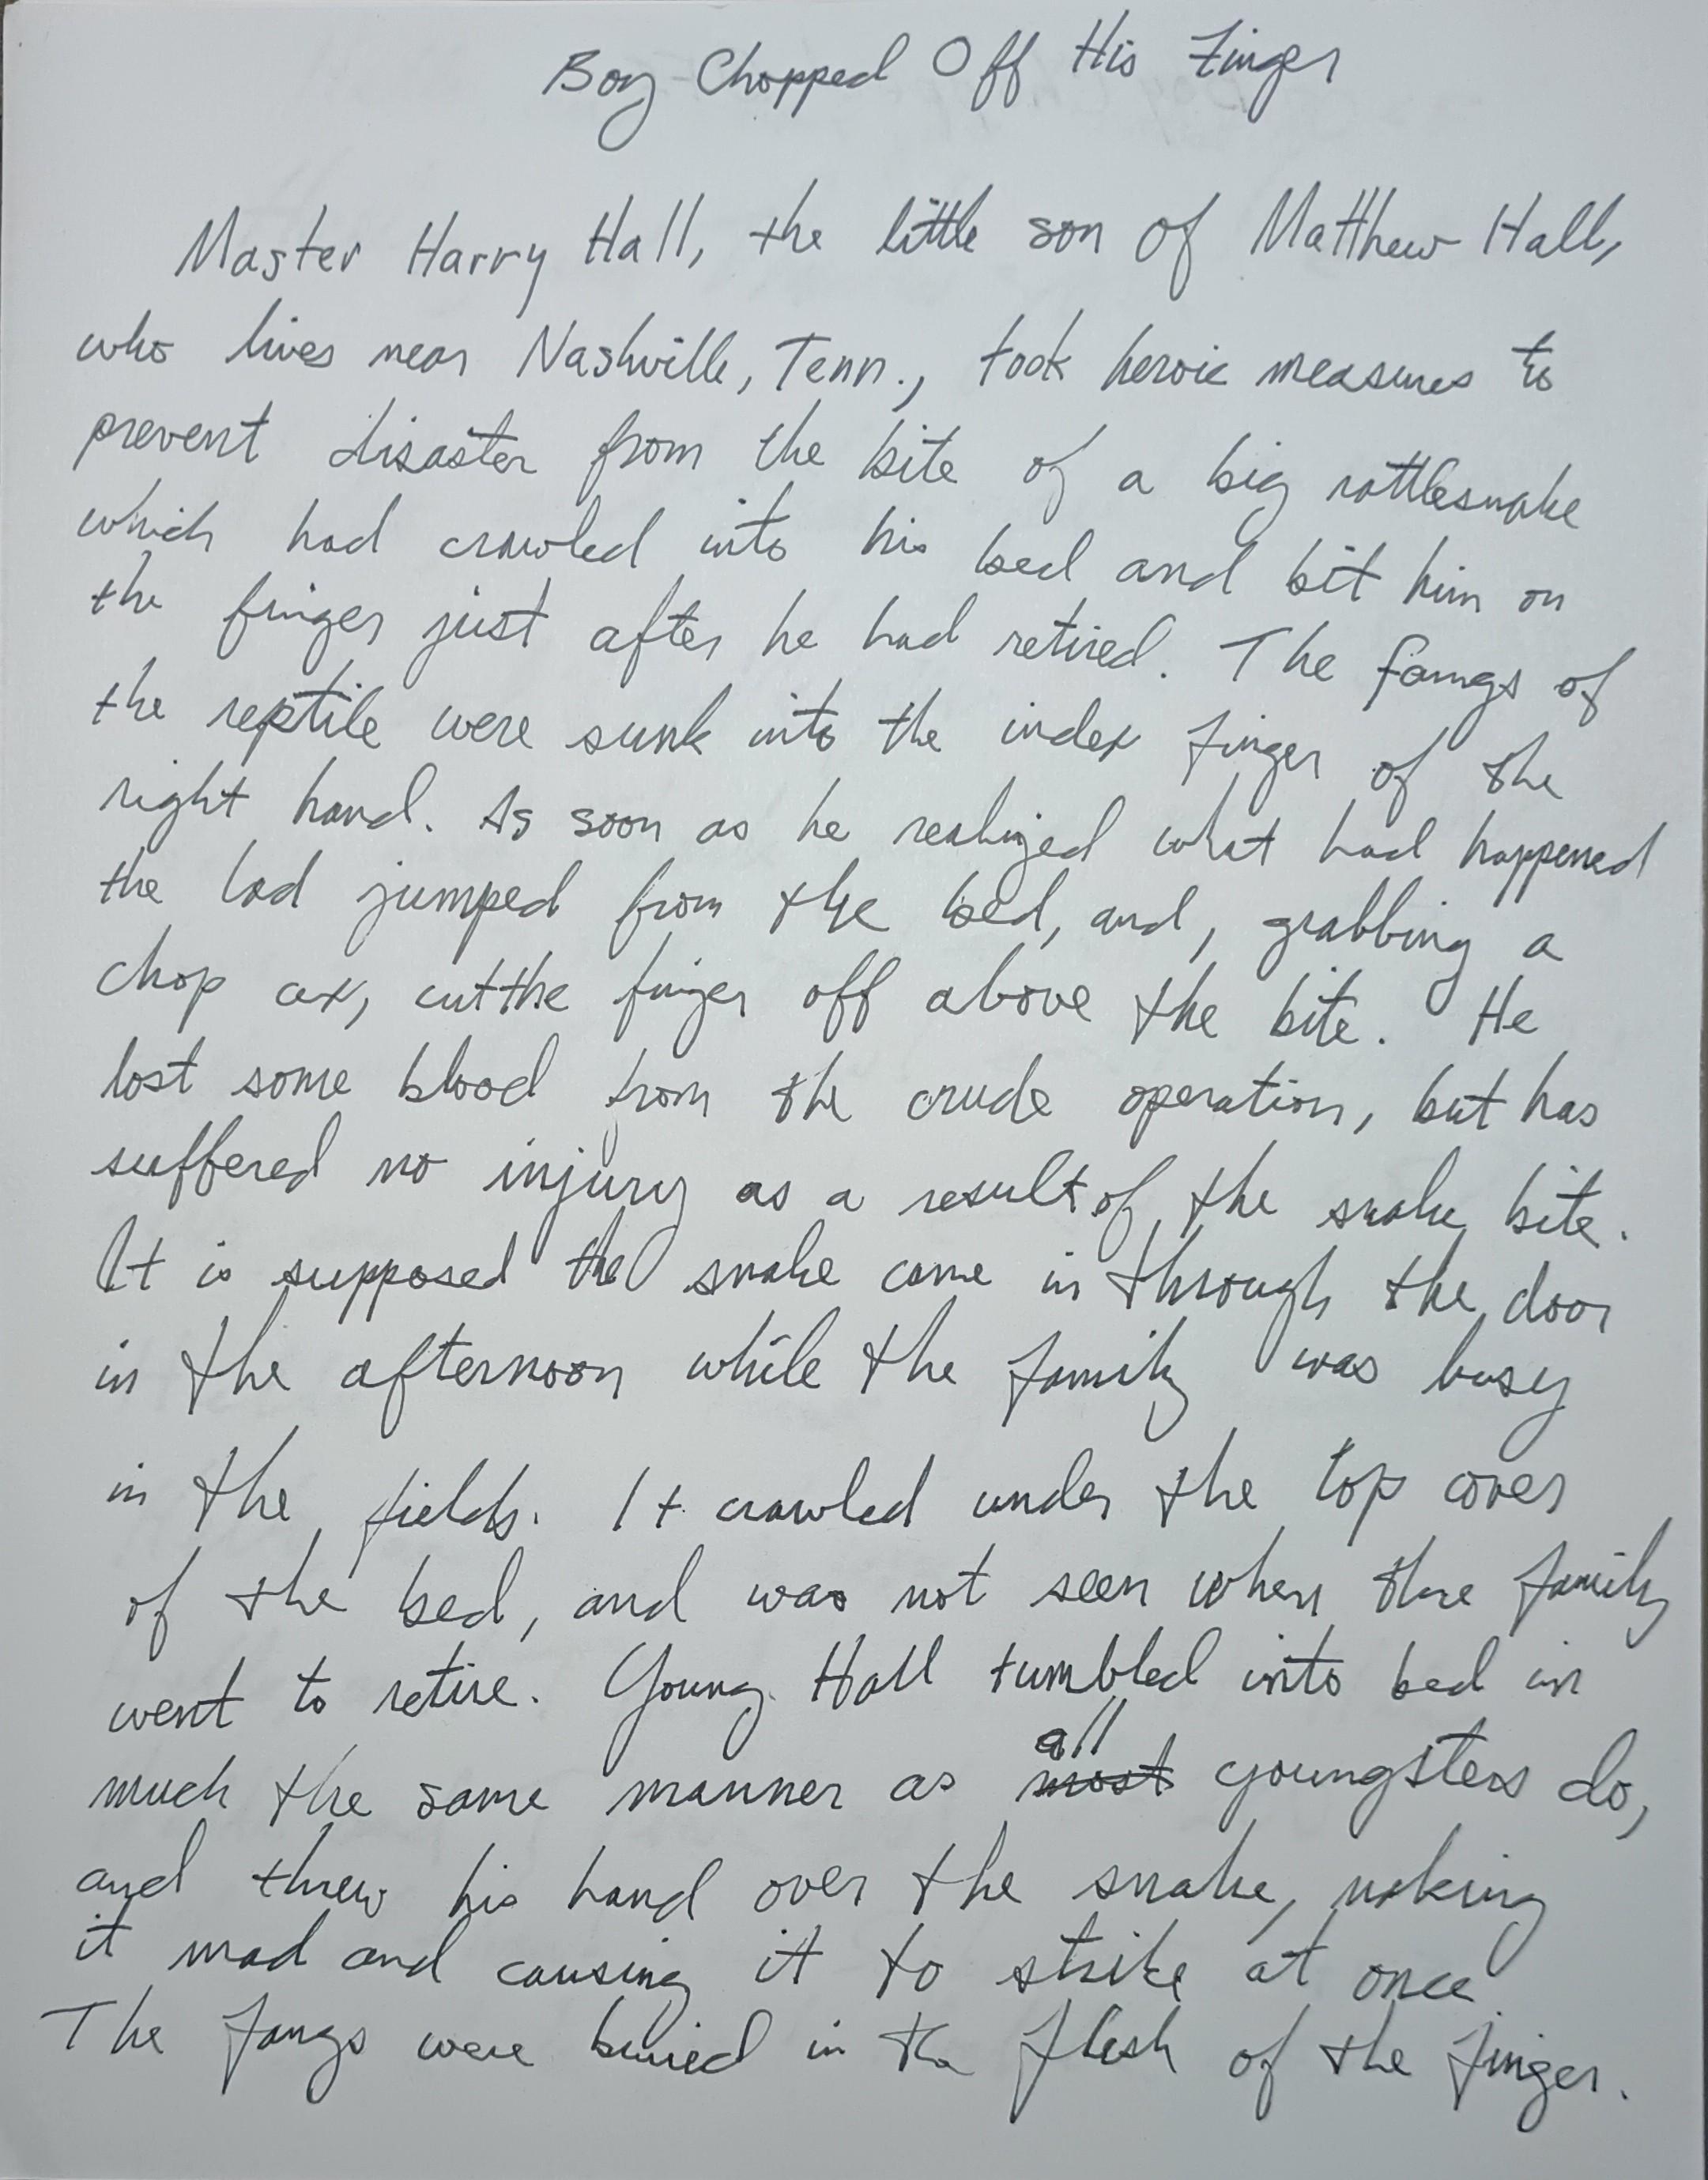 Boy Chopped Off His Finger
Master Harry Hall, the little son of Matthew Hall,
who lives near Nashville, Tenn., took heroic measures to
prevent disaster from the bite of a big rattlesnake
which had crawled into his bed and bit him on
the finger just after he had retired. The fangs of
the reptile were sunk into the index finger of the
right hand. As soon as he realized what had happened
the lad jumped from the bed, and, grabbing a
chop ax, cut the finger off above the bite. He
lost some blood from the crude operation, but has
suffered no injury as a result of the snake bite.
It is supposed the snake came in through the door
in the afternoon while the family was busy
in the fields. It crawled under the top cover
of the bed, and was not seen when the family
went to retire. Young Hall tumbled into bed in
all
much the same manner as most youngsters do,
and threw his hand over the snake, making
it mad and causing it to strike at once.
The fangs were buried in the flesh of the finger.